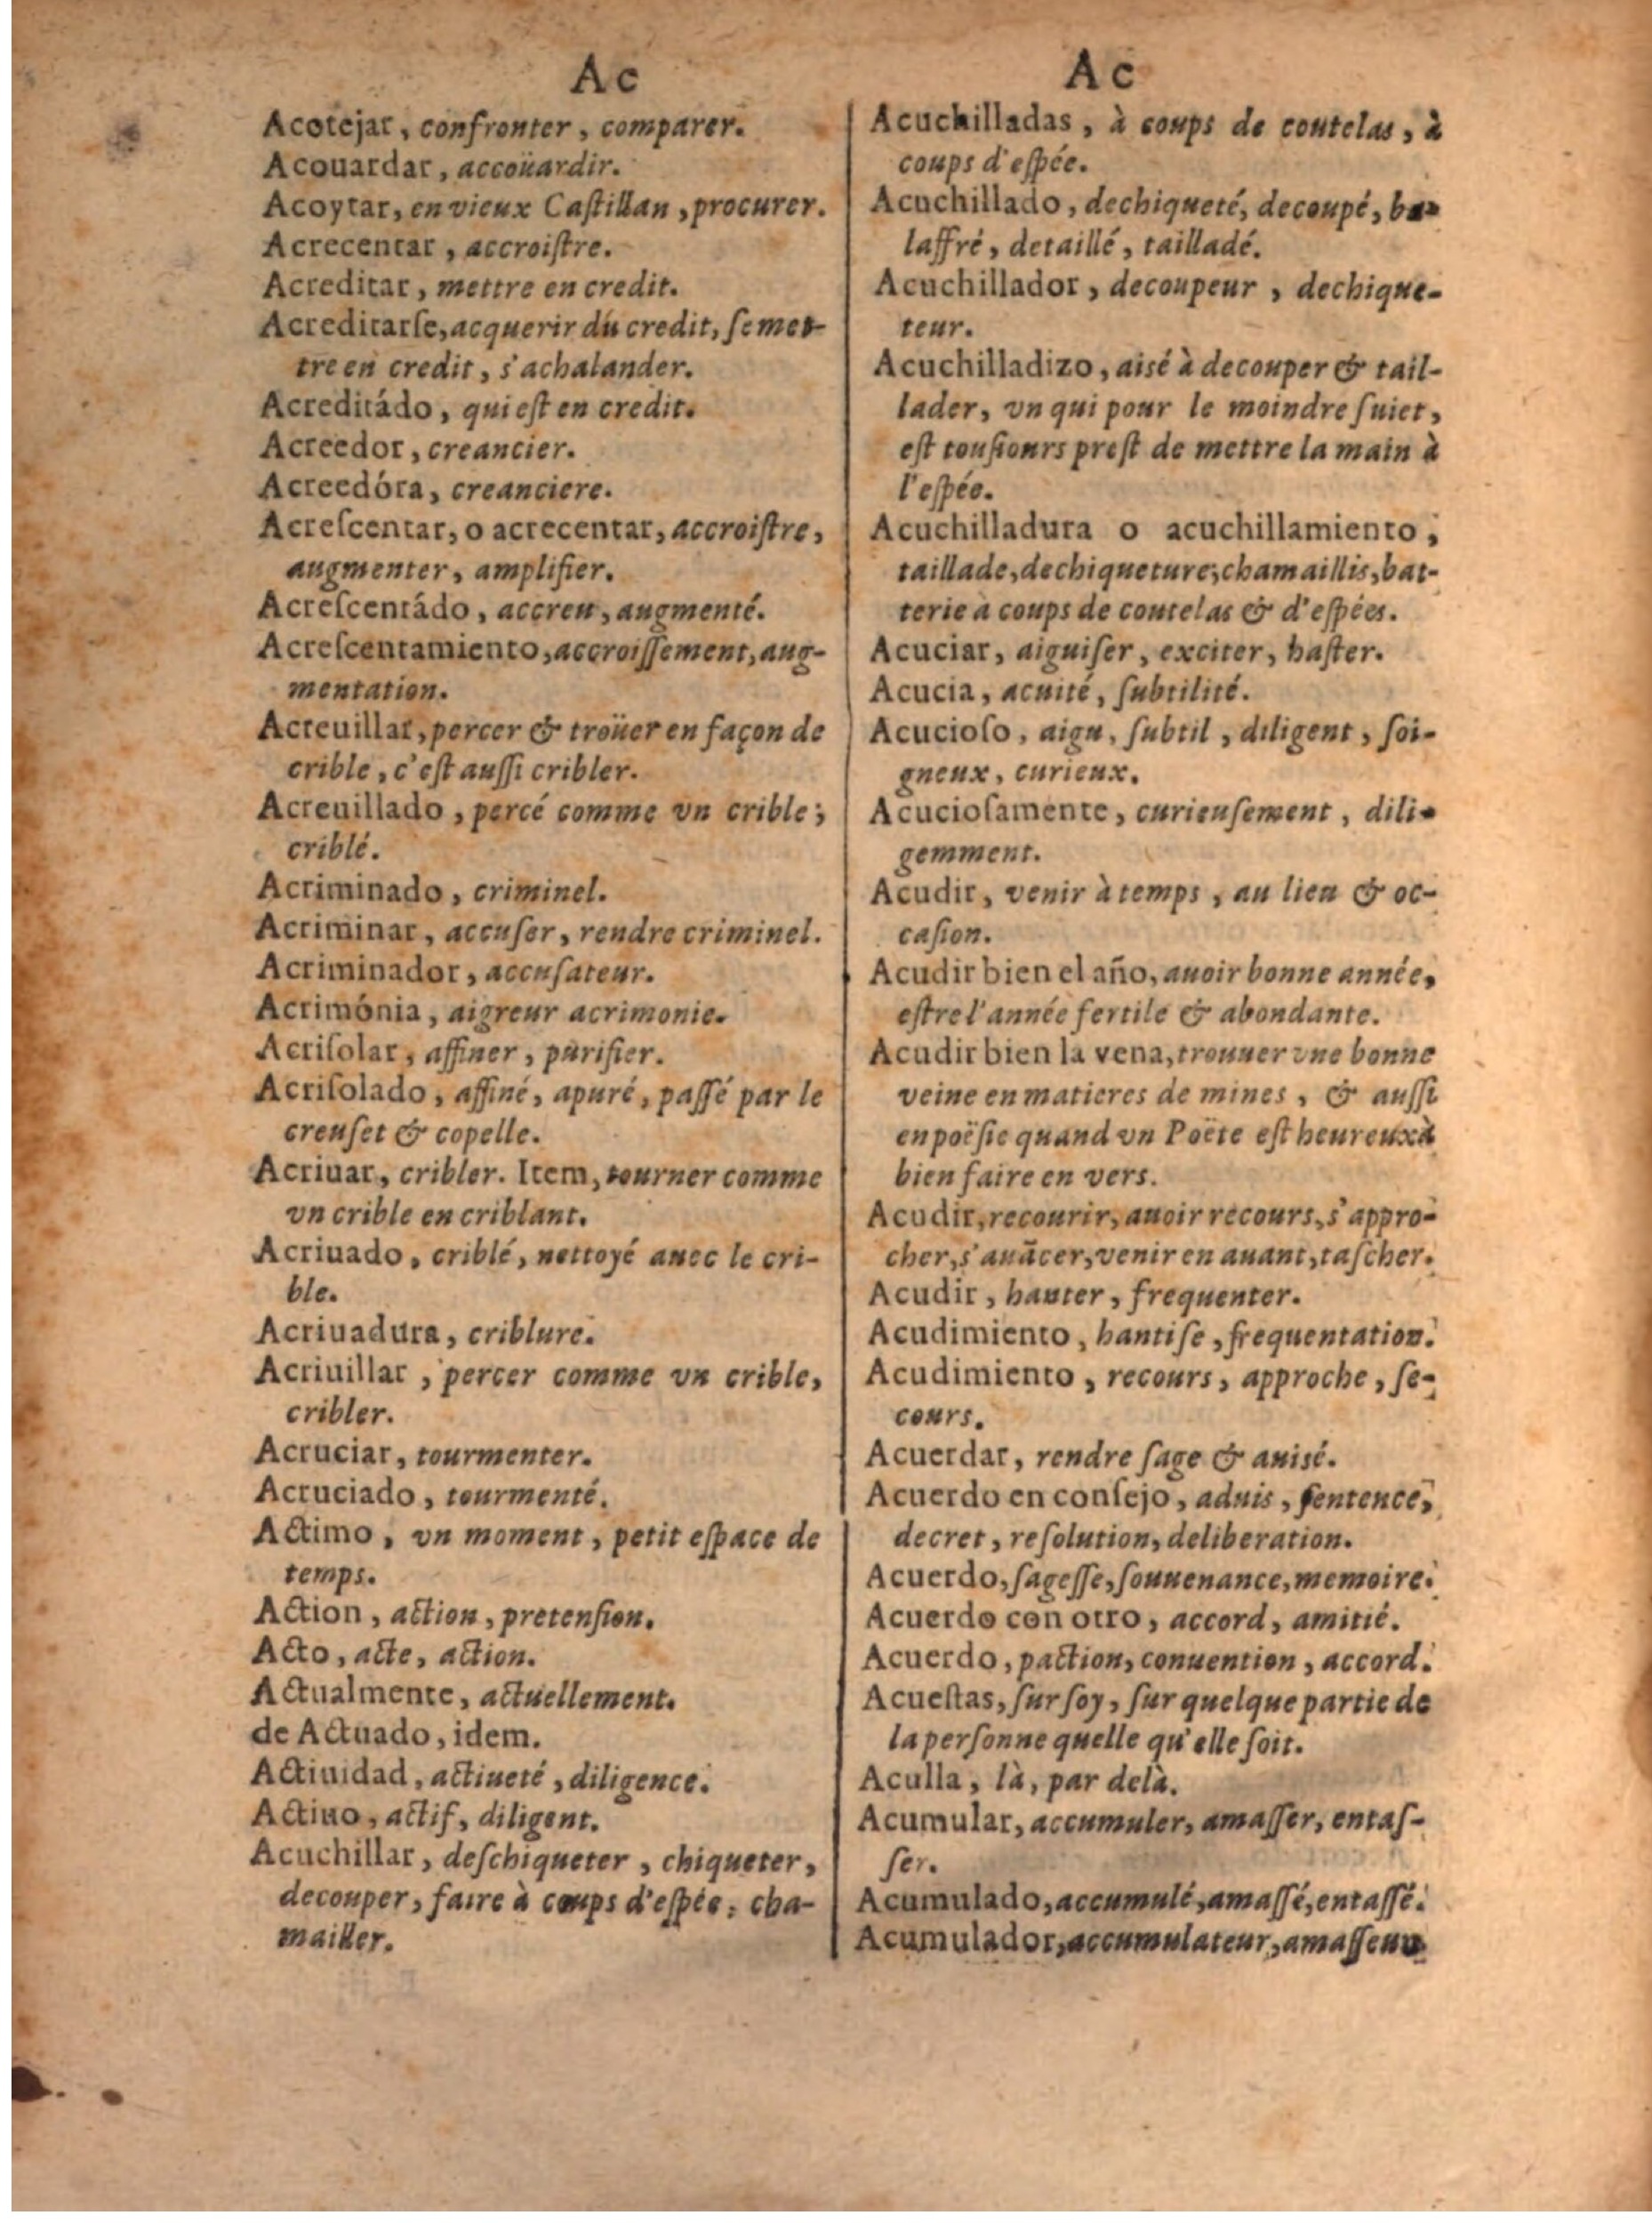 Ac
Acotejar, confronter, comparer.
Acouardar, accoüardir.
Acoytar, en vieux Caſtillan, procurer.
Acrecentar, accroiſtre.
Acreditar, mettre en credit.
Acreditarſe, acquerir du credit, ſe met-
tre en credit, s'achalander.
Acreditádo, qui eſt en credit.
Acreedor, creancier.
Acreedóra, creanciere.
Acreſcentar, o acrecentar, accroiſtre,
augmenter, amplifier.
Acreſcentádo, accreu, augmenté.
Acreſcentamiento, accroiſſement, aug-
mentation.
Acreuillar, percer & troüer en façon de
crible, c'eſt auſſi cribler.
Acreuillado, percé comme vn crible;
criblé.
Acriminado, criminel.
Acriminar, accuſer, rendre criminel.
Acriminador, accuſateur.
Acrimónia, aigreur acrimonie.
Acriſolar, affiner, purifier.
Acriſolado, affiné, apuré, paſſé par le
creuſet & copelle.
Acriuar, cribler. Item, tourner comme
vn crible en criblant.
Acriuado, criblé, nettoyé auec le cri-
ble.
Acriuadura, criblure.
Acriuillar, percer comme vn crible,
cribler.
Acruciar, tourmenter.
Acruciado, tourmenté.
Actimo, vn moment, petit eſpace de
temps.
Action, action, pretenſion.
Acto, acte, action.
Actualmente, actuellement.
de Actuado, idem.
Actiuidad, actiueté, diligence.
Actiuo, actif, diligent.
Acuchillar, deſchiqueter, chiqueter,
decouper, faire à coups d'eſpée, cha-
mailler.
Ac
Acuchilladas, à coups de coutelas, à
coups d'eſpée.
Acuchillado, dechiqueté, decoupé, ba-
laffré, detaillé, tailladé.
Acuchillador, decoupeur, dechique-
teur.
Acuchilladizo, aisé à decouper & tail-
lader, vn qui pour le moindre ſuiet,
eſt touſiours preſt de mettre la main à
l'eſpée.
Acuchilladura o acuchillamiento,
taillade, dechiqueture, chamaillis, bat-
terie à coups de coutelas & d'eſpées.
Acuciar, aiguiſer, exciter, haſter.
Acucia, acuité, ſubtilité.
Acucioſo, aigu, ſubtil, diligent, ſoi-
gneux, curieux.
Acucioſamente, curieuſement, dili-
gemment.
Acudir, venir à temps, au lieu & oc-
caſion.
Acudir bien el año, auoir bonne année,
eſtre l'année fertile & abondante.
Acudir bien la vena, trouuer vne bonne
veine en matieres de mines, & auſſi
en poëſie quand vn Poëte eſt heureux à
bien faire en vers.
Acudir, recourir, auoir recours, s'appro-
cher, s'auãcer, venir en auant, taſcher.
Acudir, hanter, frequenter.
Acudimiento, hantiſe, frequentation.
Acudimiento, recours, approche, ſe-
cours.
Acuerdar, rendre ſage & auisé.
Acuerdo en conſejo, aduis, ſentence,
decret, reſolution, deliberation.
Acuerdo, ſageſſe, ſouuenance, memoire.
Acuerdo con otro, accord, amitié.
Acuerdo, paction, conuention, accord.
Acueſtas, ſur ſoy, ſur quelque partie de
la perſonne quelle qu'elle ſoit.
Aculla, là, par delà.
Acumular, accumuler, amaſſer, entaſ-
ſer.
Acumulado, accumulé, amaſſé, entaſſé.
Acumulador, accumulateur, amaſſeur